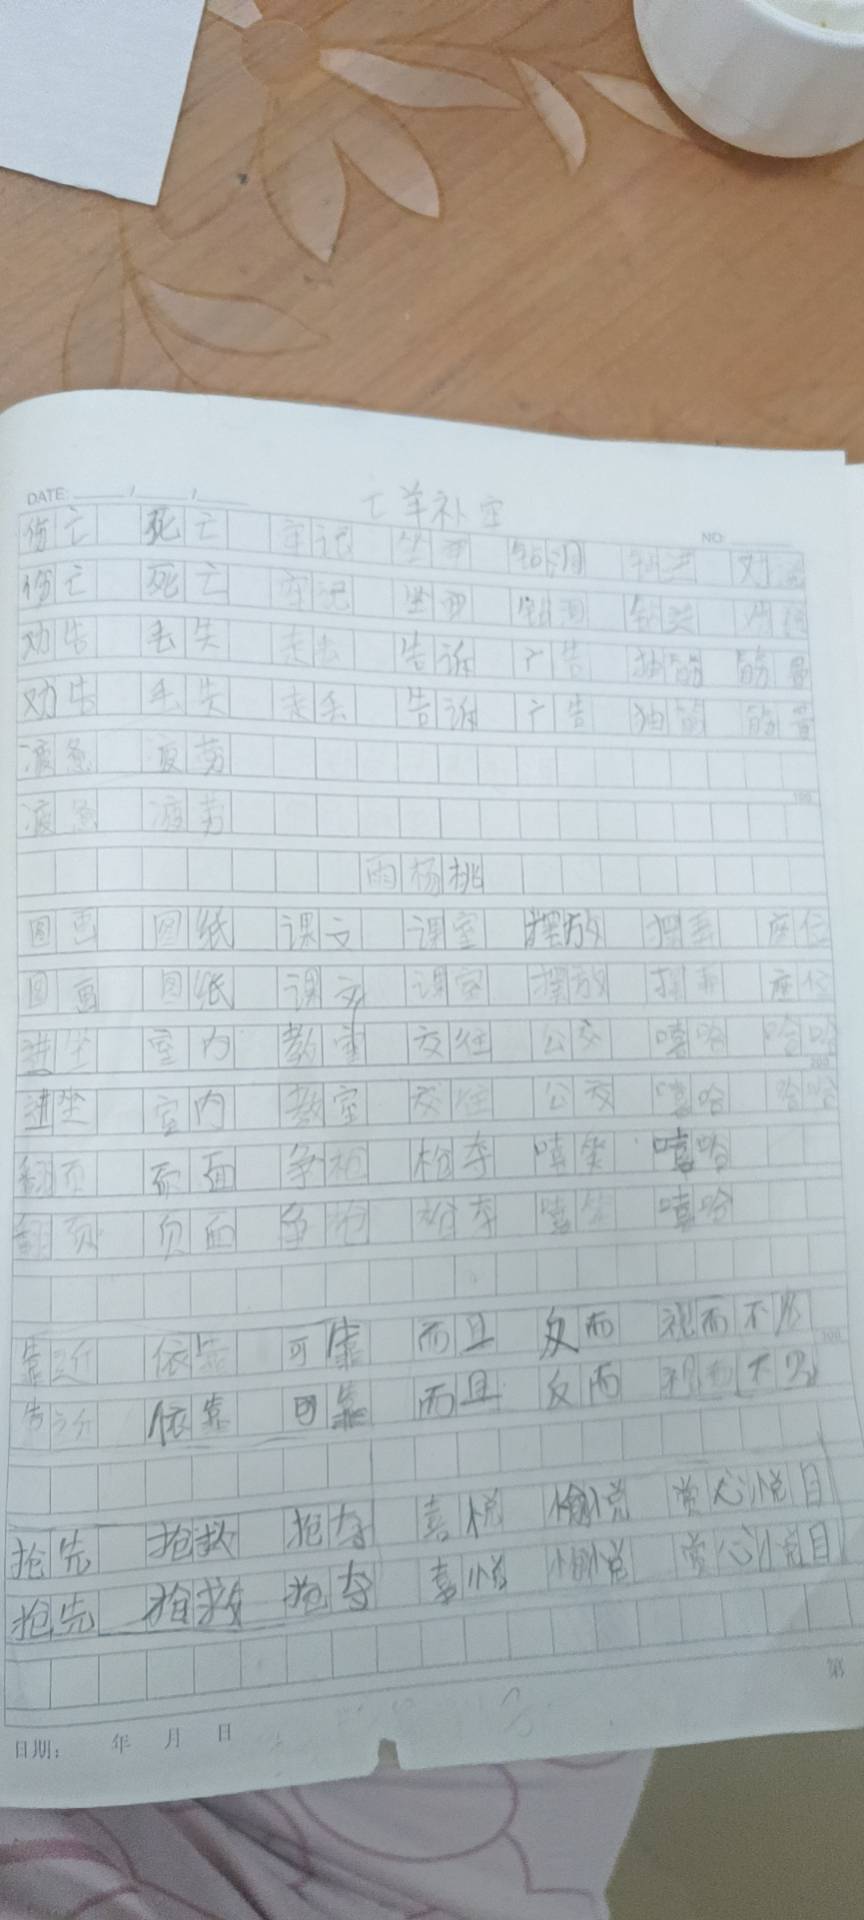 DATE: / /
亡羊补牢
NO:
伤亡 死亡 牢记 坐牢 钻洞 钻 劝
伤亡 死亡 牢记 坐牢 钻洞 钻 劝
劝告 丢失 走丢 告诉 广告 抽筋 筋骨
劝告 丢失 走丢 告诉 广告 抽筋 筋骨
疲惫 疲劳
100
疲惫 疲劳
画杨桃
图画 图纸 课文 课室 摆放 摆弄 座位
图画 图纸 课文 课室 摆放 摆弄 座位
室内 教室 交往 公交 嘻哈 哈哈
200
室内 教室 交往 公交 嘻哈 哈哈
翻页 页面 争抢 抢夺 嘻笑 嘻哈
翻页 页面 争抢 抢夺 嘻笑 嘻哈
靠近 依靠 可靠 而且 反而 视而不见
300
靠近 依靠 可靠 而且 反而 视而不见
抢先 抢救 抢夺 喜悦 愉悦 赏心悦目
抢先 抢救 抢夺 喜悦 愉悦 赏心悦目
第
日期: 年 月 日